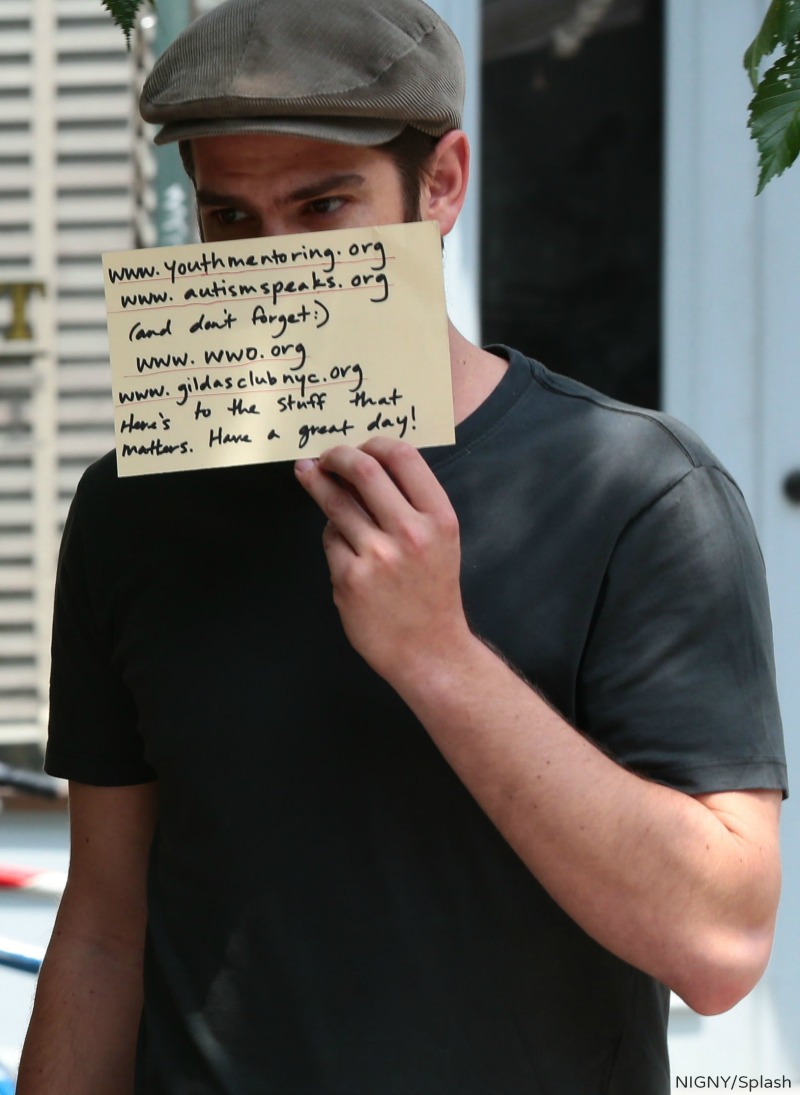 www.youthmentoring.org
www.autismspeaks.org
(and don't forget:)
www.wwo.org
www.gildasclubnyc.org
Here's to the stuff that
matters. Have a great day!
T
NIGNY/Splash